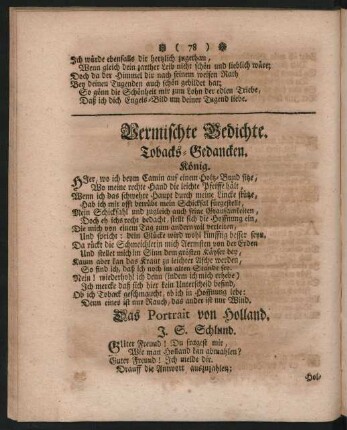 ( 78 )
Ich würde ebenfalls dir hertzlich zugethan,
Wenn gleich dein zarther Leib nicht schön und lieblich wäre;
Doch da der Himmel dir nach seinem weisen Rath
Bey deinen Tugenden auch schön gebildet hat;
So gönn die Schönheit mir zum Lohn der edlen Triebe,
Daß ich dich Engels-Bild um deiner Tugend liebe.
Vermischte Gedichte.
Tobacks-Gedancken.
König.
HJer, wo ich beym Camin auf einem Holtz-Bund sitze,
Wo meine rechte Hand die leichte Pfeiffe hält,
Wenn ich das schwehre Haupt durch meine Lincke stütze,
Hab ich mir offt betrübt mein Schicksal fürgestellt,
Mein Schicksahl und zugleich auch seine Grausamkeiten,
Doch eh ichs recht bedacht, stellt sich die Hoffnung ein,
Die mich von einem Tag zum andern will verleiten,
Und spricht: dein Glücke wird noch künfftig besser seyn.
Da rückt die Schmeichlerin mich Aermsten von der Erden
Und stellet mich im Sinn dem grösten Käyser bey,
Kaum aber kan das Kraut zu leichter Asche werden,
So find ich, daß ich noch im alten Stande sey.
Nein! wiederhohl ich denn (indem ich mich erhebe)
Ich mercke daß sich hier kein Unterscheid befind,
Ob ich Toback geschmaucht, ob ich in Hoffnung lebe:
Denn eines ist nur Rauch, das ander ist nur Wind.
Das Portrait von Holland.
J. S. Schlund.
GUter Freund! Du fragest mir,
Wie man Holland kan abmahlen?
Guter Freund! Ich melde dir,
Drauff die Antwort auszuzahlen;
Hol-